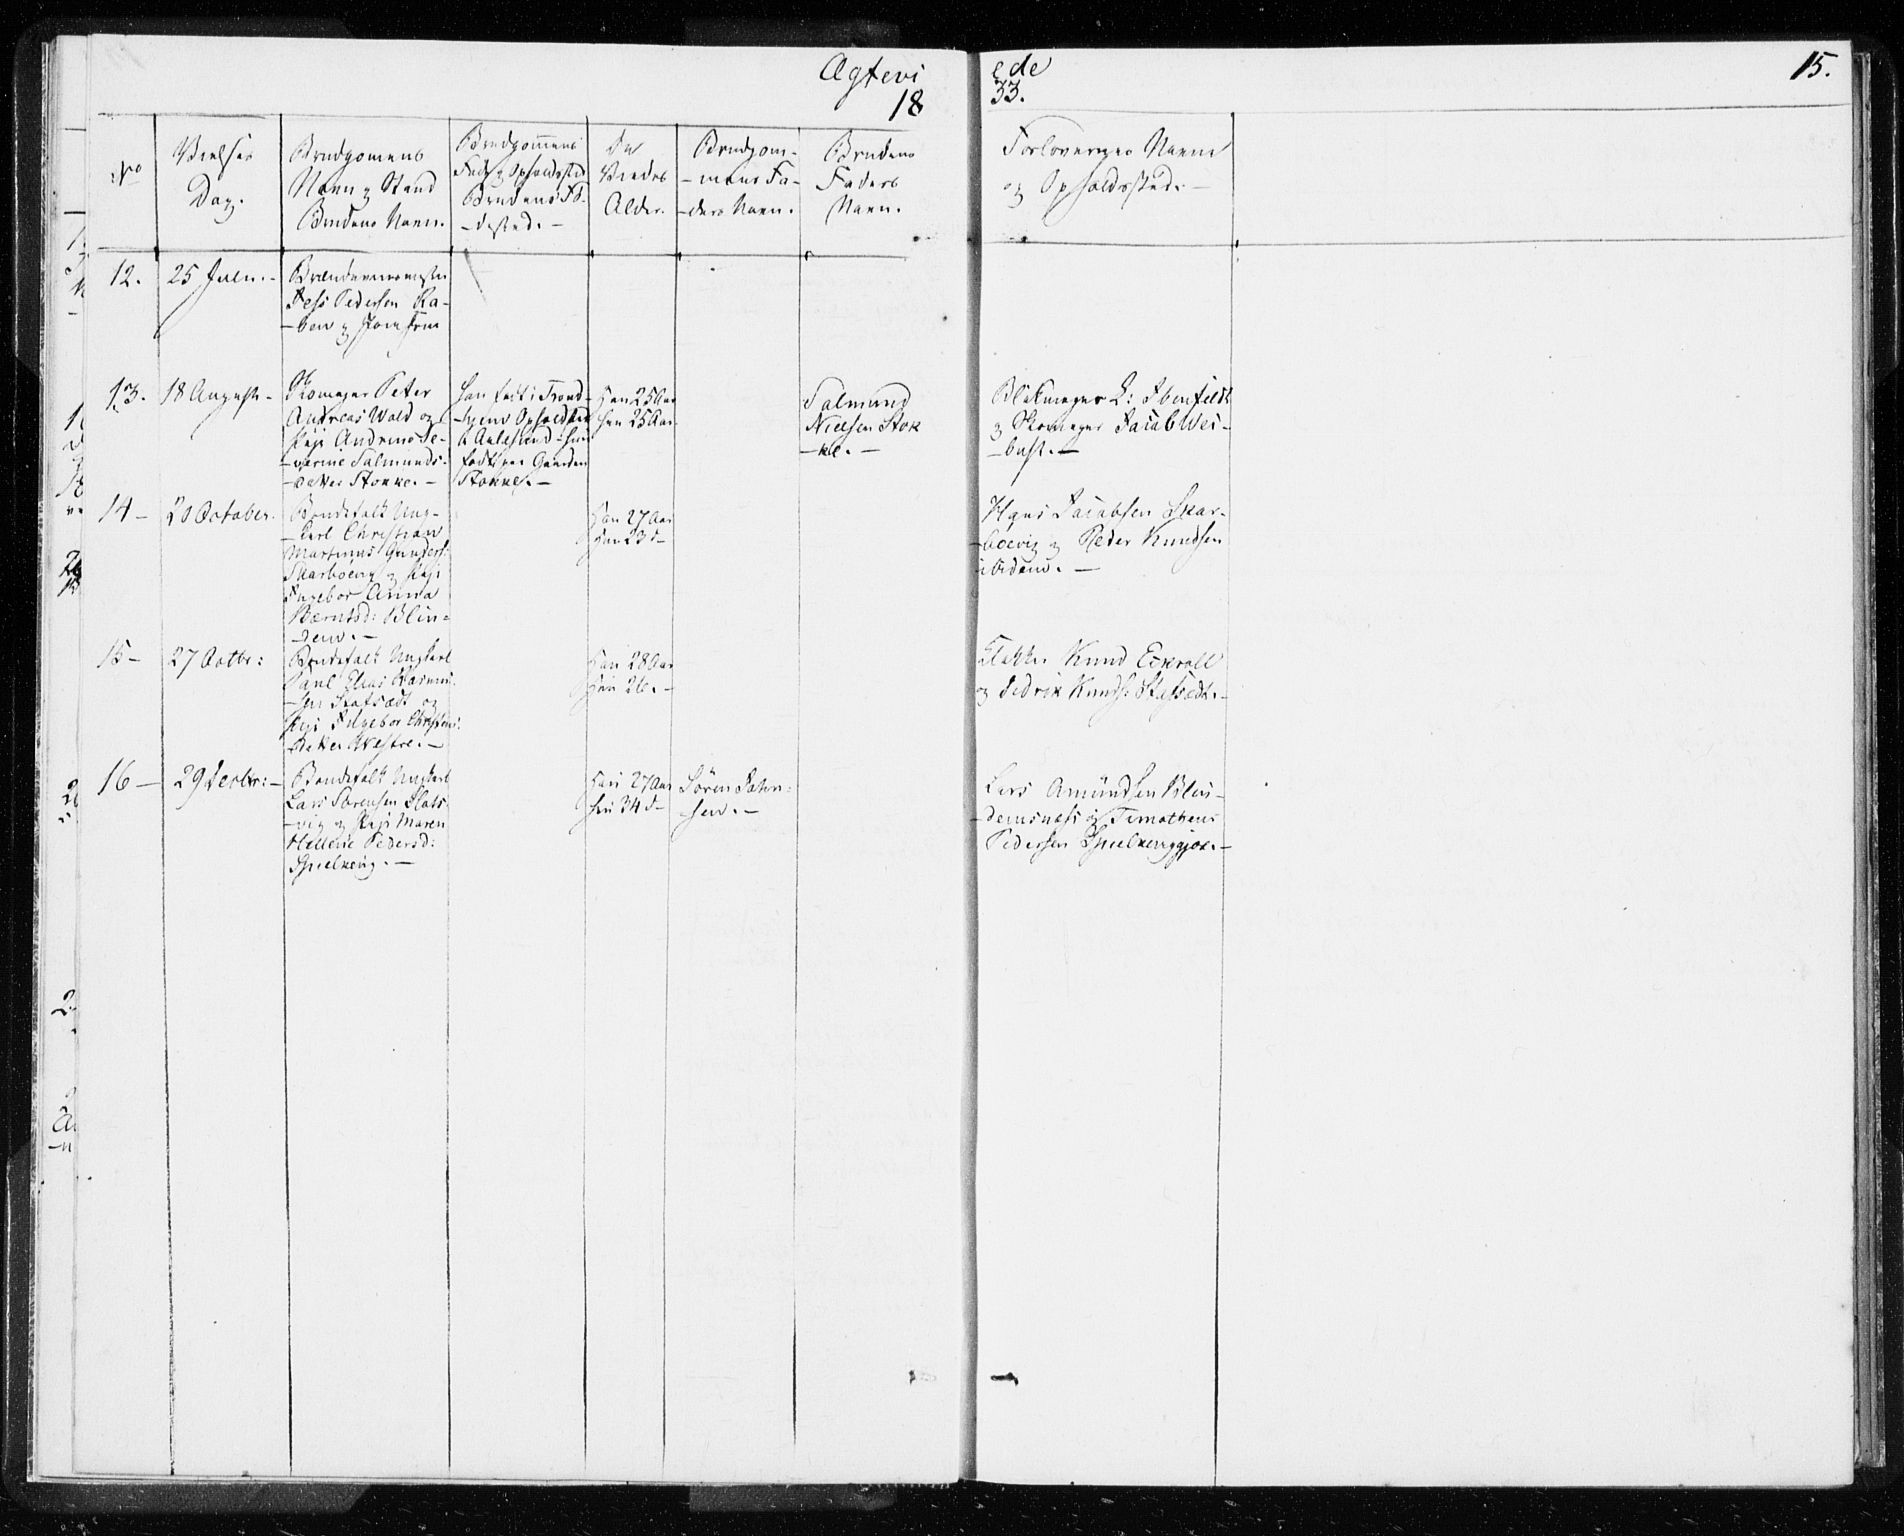 Ægtevi ede 15.
18 33.
No
Vielses
Dag.
Brudgomens
Navn og Stand
Brudens Navn.
Brudgomens
Føde og Opholdssted
Brudens Fø-
-dested. -
De
Viedes
Alder.
Brudgom-
-mens Fa-
-ders Navn.
Brudens
Faders
Navn.
Forlovernes Navne
og Opholdssted. -
12. 25 -
Jess Pedersen Ra-
-ben og
13. 18 August -
Skomager Peter
Andreas Wold og
Pige Andrine Se-
-verine Salmunds-
-datter Stokke. -
han født i Trond-
-hjem Opholdsted
i Aalesund - hun
født paa Gaarden
Stokke. -
Han 25 Aar
Hun 25 Aar
Salmund
Nielsen Stok
-ke. -
Blikmager L: Ibenfeldt
og Skomager Jacob Wei-
-bust. -
14 - 20 October.
Bondefolk Ung-
-karl Christian
Martinus Gunders:
Skarbøevig og Pige
Ingebor Anna
Berntsd: Blin-
-dem. -
Han 27 Aar
Hun 23 d -
Hans Jacobsen Skar-
-bøevig og Peder Knudsen
ibidem. -
15 - 27 Octbr:
Bondefolk Ungkarl
Paul Elias Rasmu-
-sen Slatsædt og
Pige Ingebor Christens:
datter Aestre. -
Han 28 Aar
Hun 26. -
Knud Eckroll
og Didrik Knuds: Slatsædt. -
16 - 29 Decbr: -
Bondefolk Ungkarl
Lars Sørensen Slots-
-vig og Pige Maren
Hellene Pedersd:
Spielkevig. -
Han 27 Aar
Hun 34 d -
Søren John-
sen. -
Lars Amundsen Blin-
-demsnæss og Timotheus
Pedersen Spielkeviggjer. -